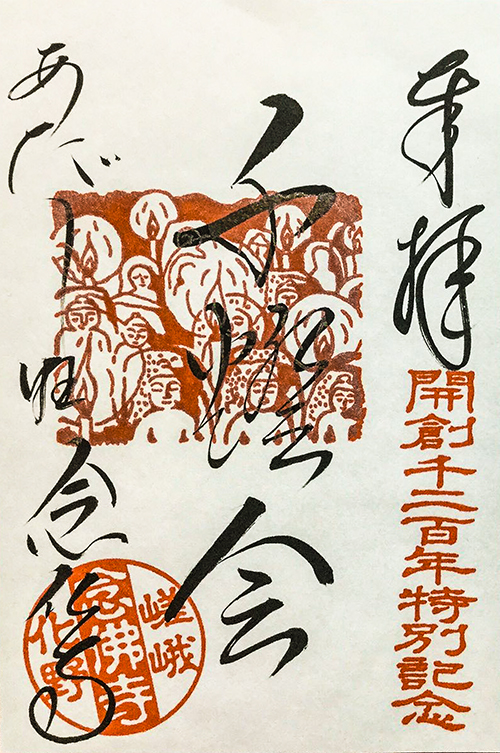 奉拝
開創千二百年特別記念
千燈会
あだし野念仏寺
嵯峨
念佛寺
化野